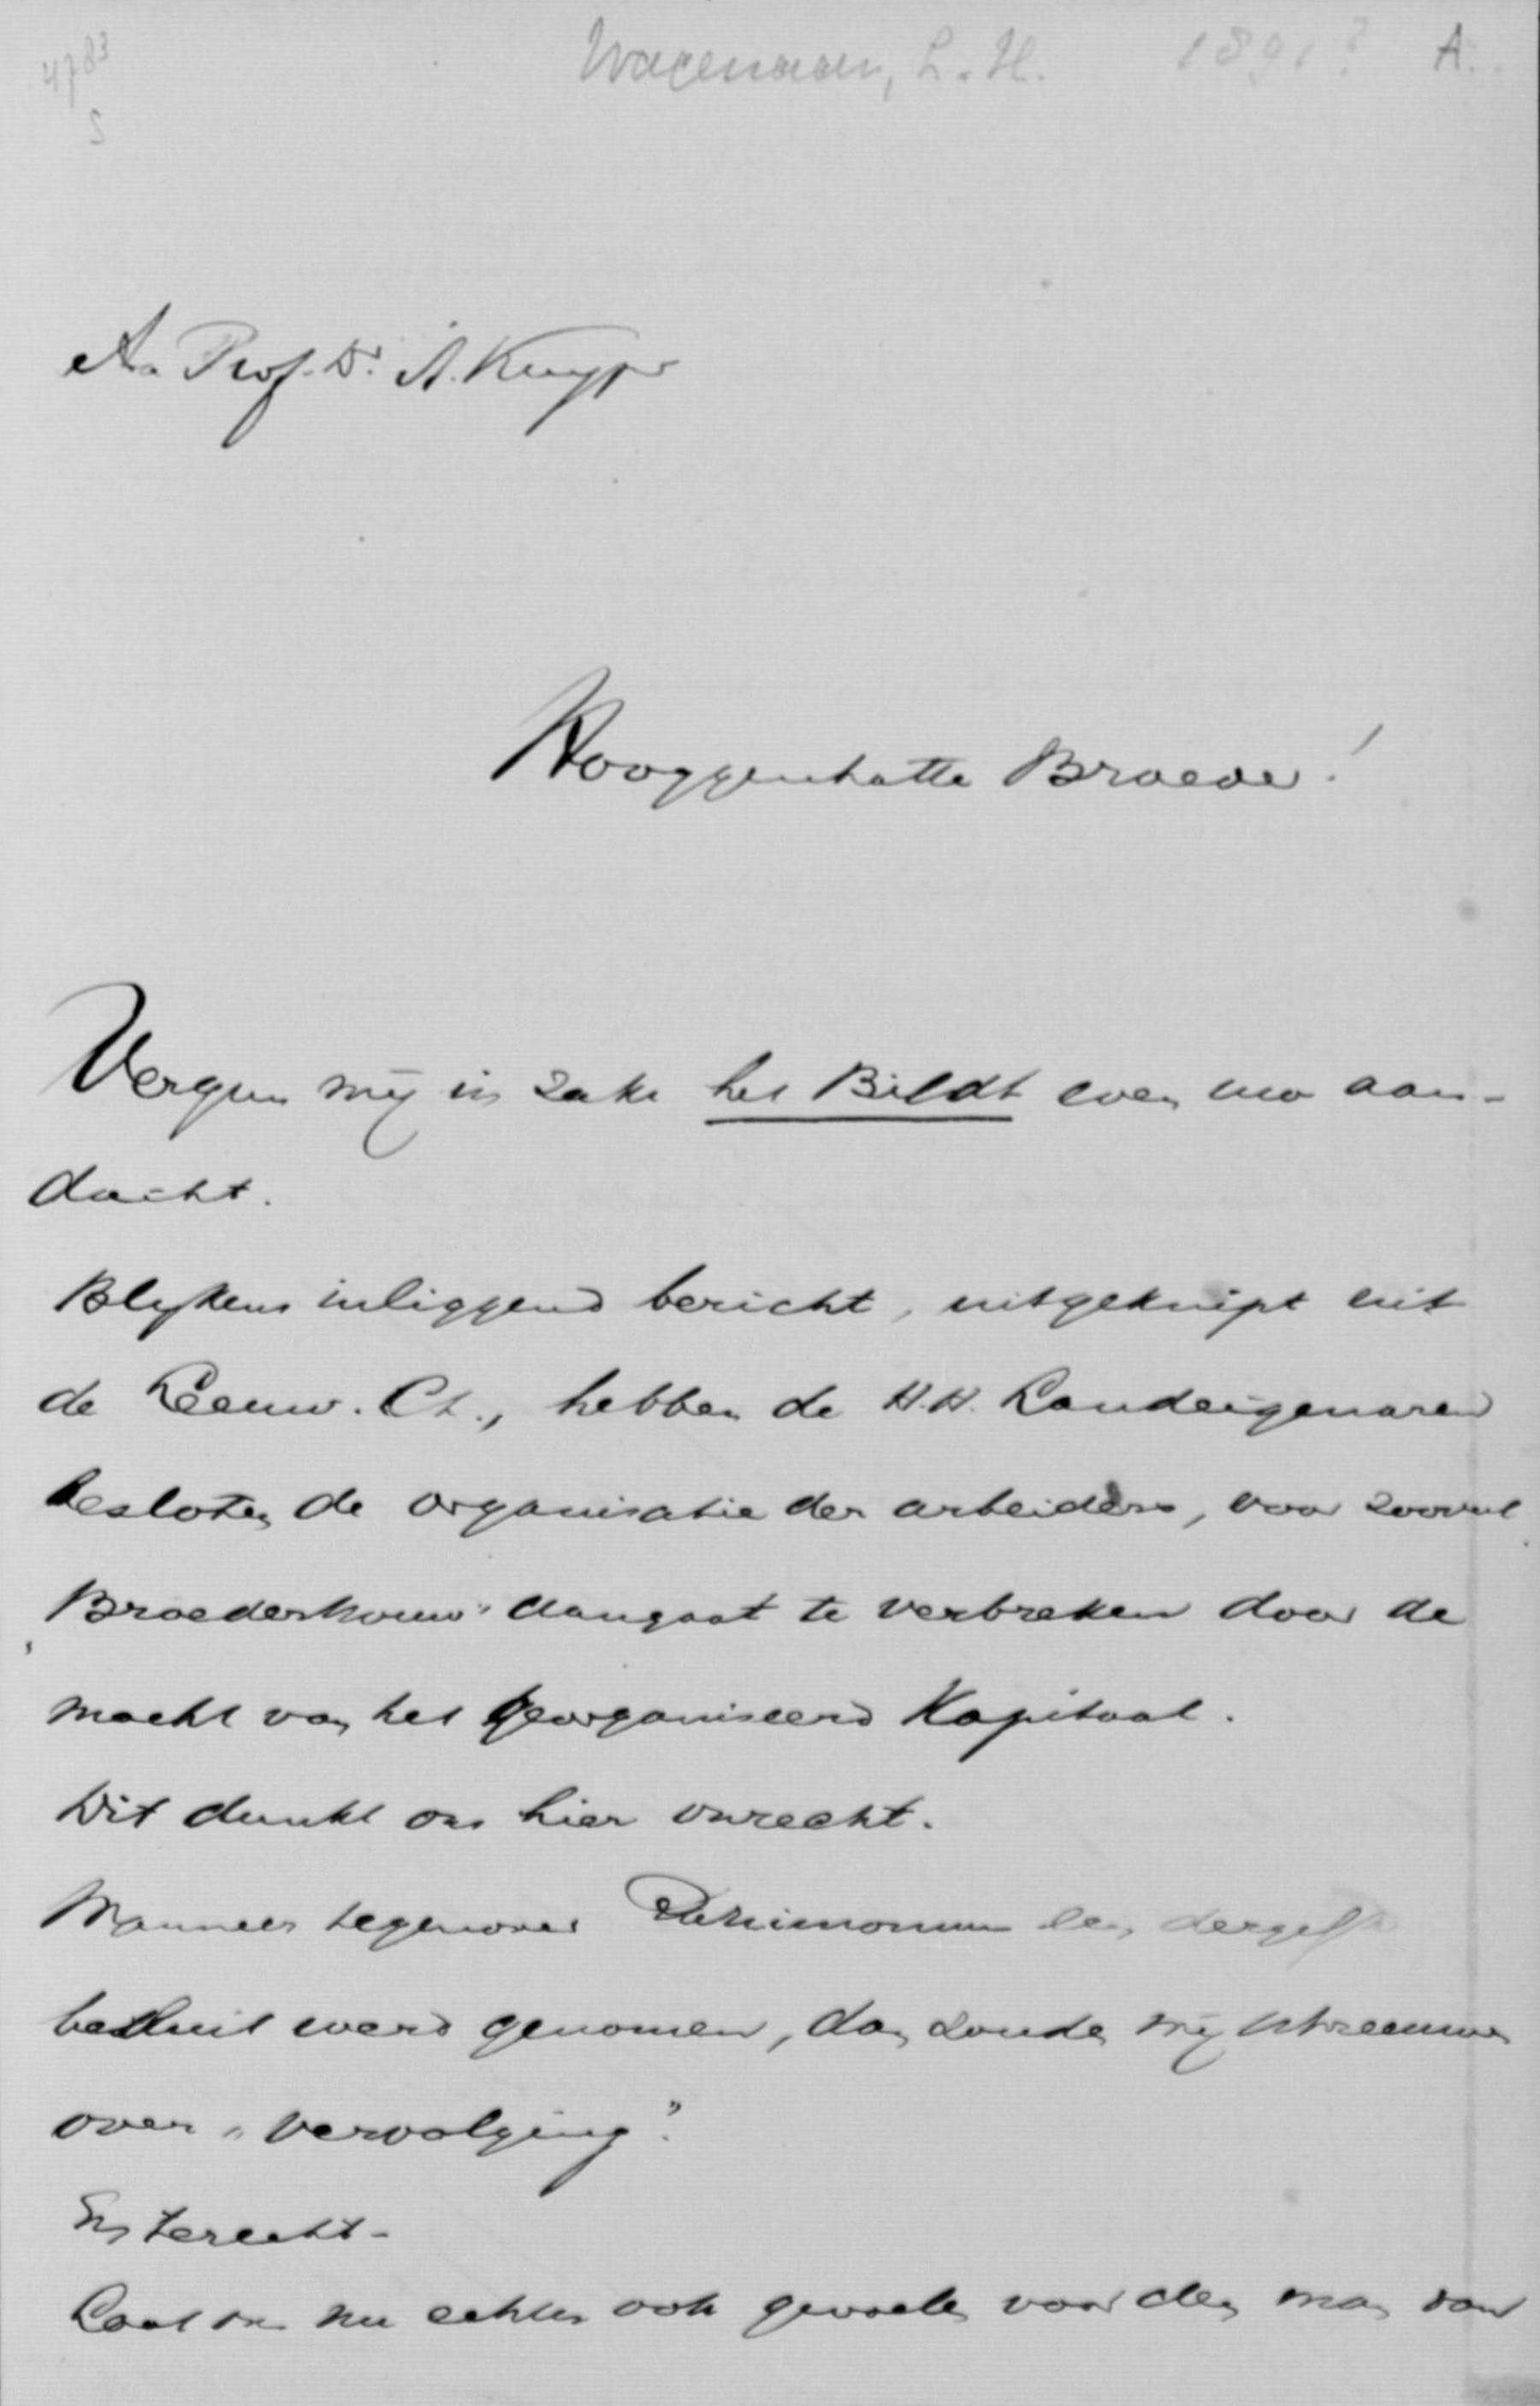 4783
S
Wagenaar, L. H. 1891? A.
Aa Prof. Dr. A. Kuyper
Hooggeschatte Broeder!
Vergun mij in zake het Bildt even uw aan-
dacht.
Blijkens inliggend bericht, uitgeknipt uit
de Leeuw. Ct., hebben de H.H. Landeigenaren
besloten de organisatie der arbeiders, voor zooveel
„Broedertrouw" aangaat te verbreken door de
macht van het georganiseerd Kapitaal.
Dit dunkt ons hier onrecht.
Wanneer tegenover Patrimonium een dergelijk
besluit werd genomen, dan zouden wij schreeuwen
over „vervolging".
En terecht.
Laat ons nu echter ook gevoelen voor den man van